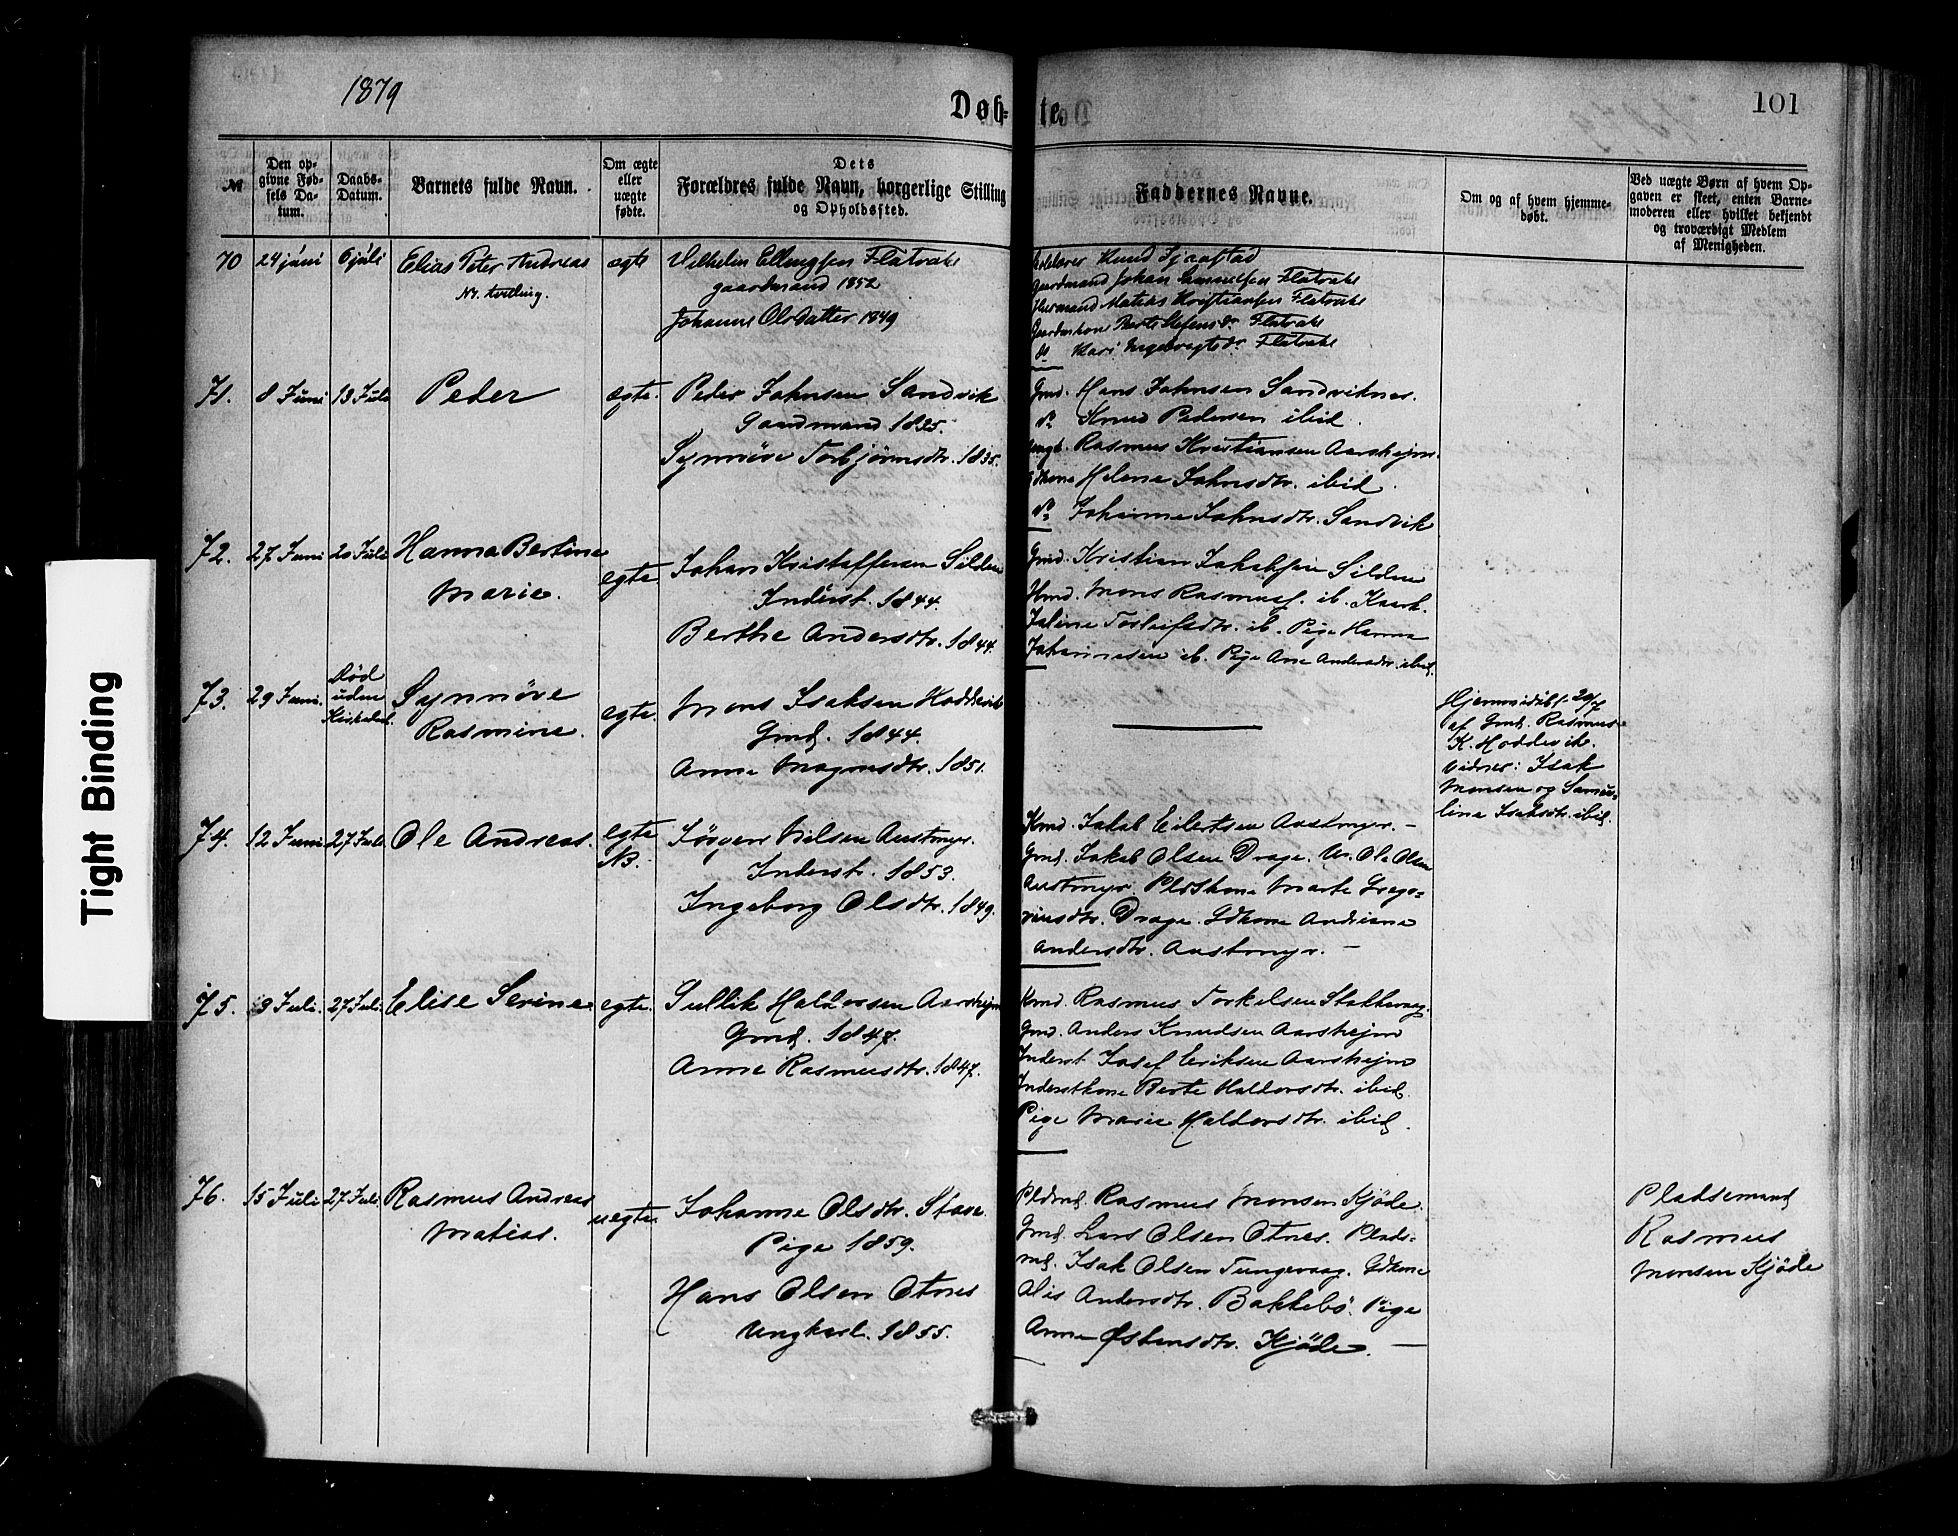 1879
Døb-
te.
101
№
Den op-
givne Fød-
sels Da-
tum.
Daabs-
Datum.
Barnets fulde Navn.
Om ægte
eller
uægte
fødte.
Dets
Forældres fulde Navn, borgerlige Stilling
og Opholdssted.
Faddernes Navne.
Om og af hvem hjemme-
døbt.
Ved uægte Børn af hvem Op-
gaven er skeet, enten Barne-
moderen eller hvilket bekjendt
og troværdigt Medlem
af Menigheden.
70
24 juni
6 juli
Elias Peter Andreas
ægte
Vilhelm Ellingsen Flatrake
gaardmand 1852
Johanne Olsdatter 1849
Knud
gaardmand Johan Flatrake
Matias Kristiansen Flatrake
Berte Flatrake
do Kari Flatrake
71.
8 Juni
13 Juli
Peder
ægte.
Peder Johnsen Sandvik
Gaardmand 1825.
Synnöve Torbjörnsdtr. 1835.
Gmd. Hans Johnsen Sandviknes.
do Knud Pedersen ibid.
Rasmus Kristiansen Aarsheim.
Helene Johnsdtr. ibid.
do Johanne Johnsdtr. Sandvik
72.
27 Juni
20 Juli
Hanna Bertine
Marie.
egte
Johan Kristoffersen Silden
Inderst. 1844.
Berthe Andersdtr. 1844.
Gmd. Kristian Jakobsen Silden
Hmd. Mons Rasmuss. ib. Kaark.
Jaline Torleifsdtr. ib. Pige Hanna
Johannesen ib. Pige Ane Andersdtr. ibid.
73.
29 Juni.
Död
uden
Kirkedaab.
Synnöve
Rasmine.
egte.
Mons Isaksen Hoddevik
Gmd. 1844.
Anne Magnusdtr. 1851.
Hjemmedöbt 20/7
af Gmd. Rasmus
K. Hoddevik.
Vidner: Isak
Monsen og Samu-
line Isaksdtr. ibid.
74.
12 Juni
27 Juli
Ole Andreas.
egte
NB.
Jörgen Nilsen Aastmyr.
Inderst. 1853.
Ingeborg Olsdtr. 1849.
Kmd. Jakob Eilertsen Aastmyr. —
Gmd. Jakob Olsen Drage. Ole Olsen
Aastmyr. Pldskone Marte Grego-
riusdtr. Drage. Gdkone Andriane
Andersdtr. Aastmyr. —
75.
3 Juli.
27 Juli.
Elise Serine
egte.
Sullik Haldorsen Aarsheim
Gmd. 1847.
Anne Rasmusdtr. 1847.
Kmd. Rasmus Torkelsen Stokkevaag.
Gmd. Anders Knudsen Aarsheim
Inderst Josef Eriksen Aarsheim
Inderstkone Berte Haldorsdtr. ibid.
Pige Marie Haldorsdtr. ibid.
76.
15 Juli
27 Juli.
Rasmus Andreas
Matias.
uegte
Johanne Olsdtr. Stave
Pige 1859.
Hans Olsen Otnes
Ungkarl. 1855.
Pldsmd. Rasmus Monsen Kjöde.
Gmd. Lars Olsen Otnes. Plads-
md. Isak Olsen Tungevaag. Gdkone
Alis Andersdtr. Bakkebö. Pige
Anne Østensdtr. Kjöde. —
Pladsemand
Rasmus
Monsen Kjöde
Tight Binding